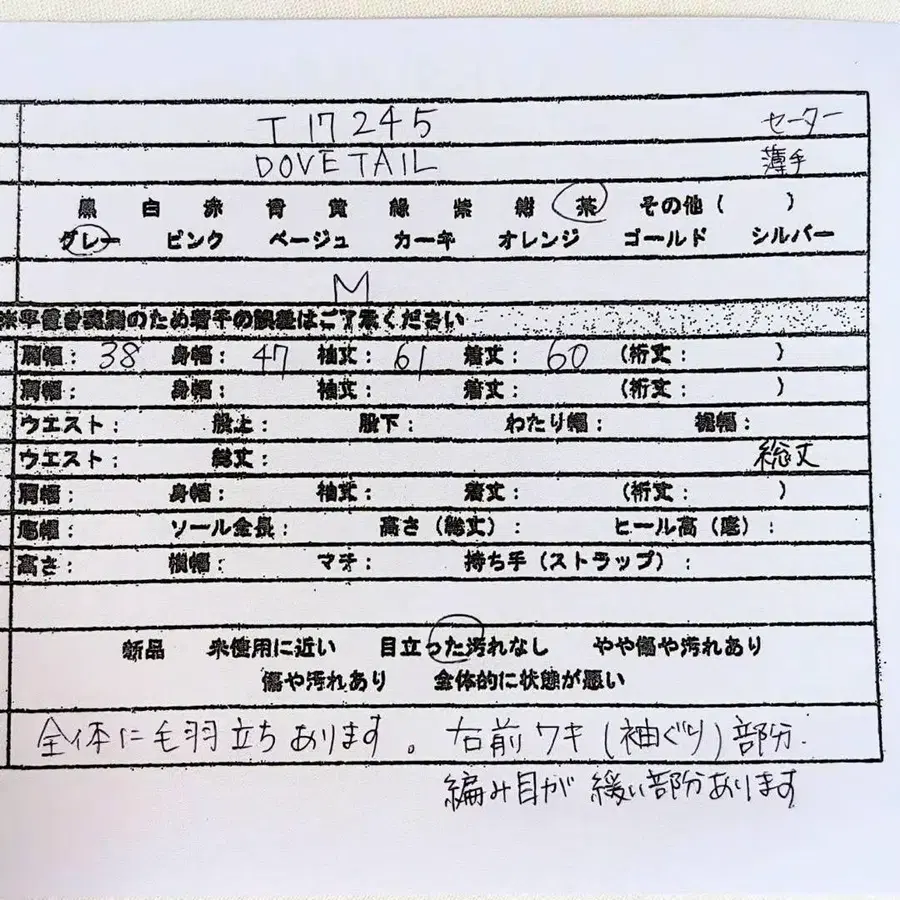 T17245 セーター
DOVETAIL 薄手
黒 白 赤 青 黄 緑 紫 紺 茶 その他( )
グレー ピンク ベージュ カーキ オレンジ ゴールド シルバー
M
※平置き実測のため若干の誤差はご了承ください
肩幅: 38 身幅: 47 袖丈: 61 着丈: 60 (裄丈: )
肩幅: 身幅: 袖丈: 着丈: (裄丈: )
ウエスト: 股上: 股下: わたり幅: 裾幅:
ウエスト: 総丈: 総丈
肩幅: 身幅: 袖丈: 着丈: (裄丈: )
底幅: ソール全長: 高さ(総丈): ヒール高(底):
高さ: 横幅: マチ: 持ち手(ストラップ):
新品 未使用に近い 目立った汚れなし やや傷や汚れあり
傷や汚れあり 全体的に状態が悪い
全体に毛羽立ちあります。右前ワキ(袖ぐり)部分.
編み目が緩い部分あります